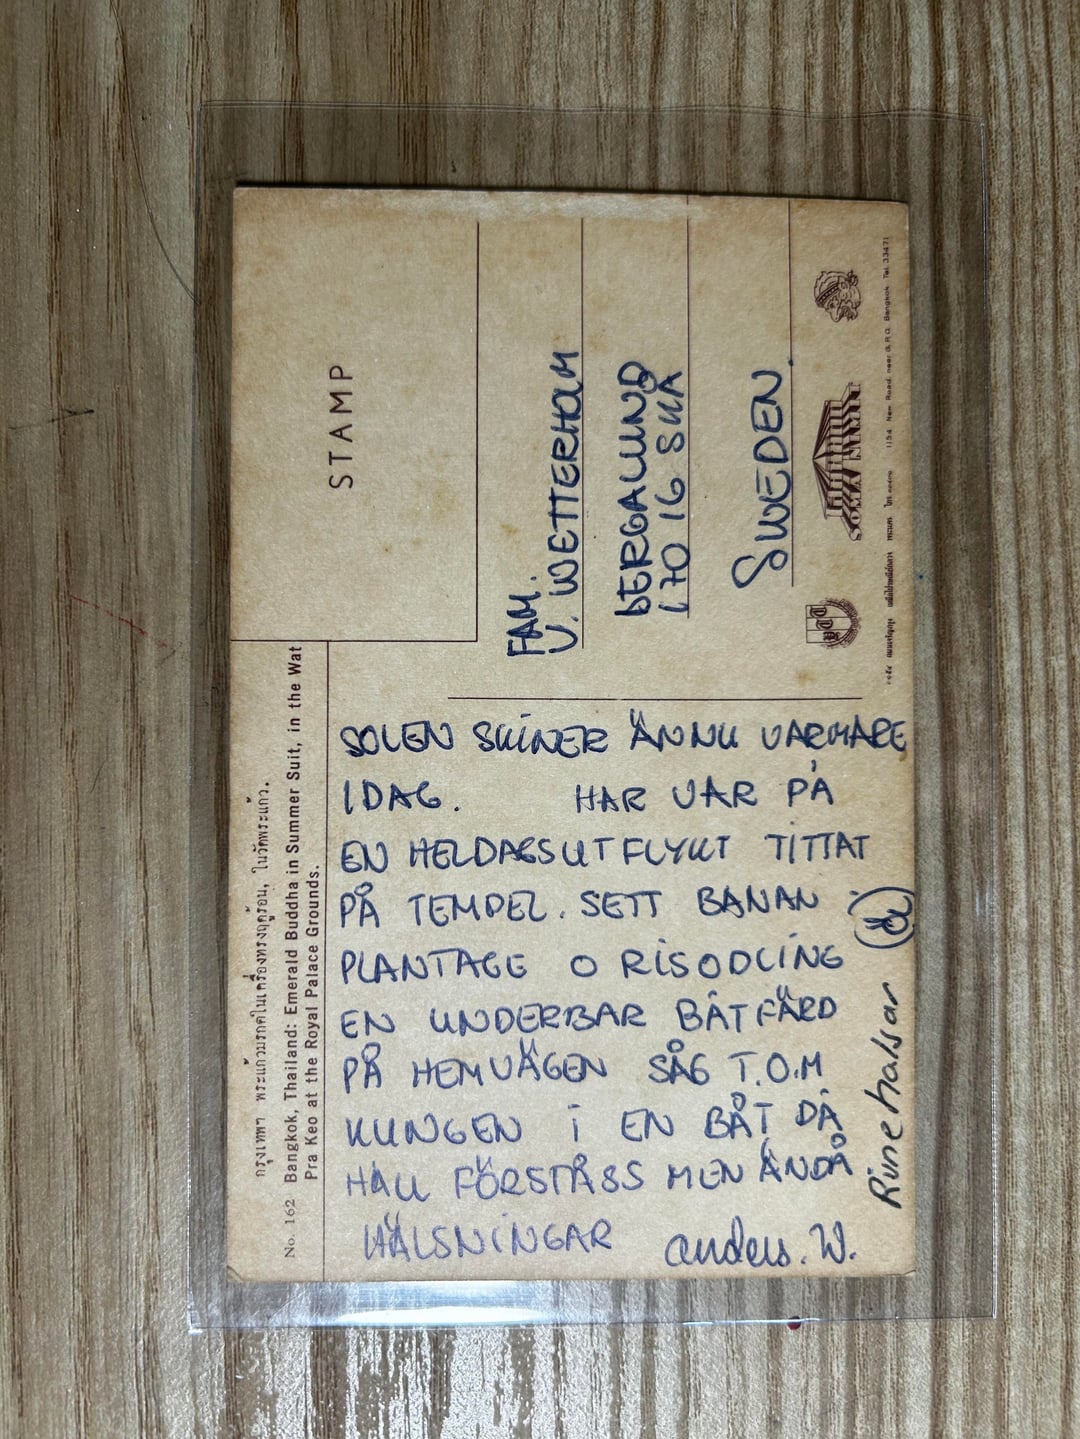 กรุงเทพฯ พระแก้วมรกตในเครื่องทรงฤดูร้อน, ในวัดพระแก้ว.
No. 162 Bangkok, Thailand: Emerald Buddha in Summer Suit, in the Wat
Pra Keo at the Royal Palace Grounds.
SOLEN SKINER ÄNNU VARMARE
IDAG. HAR VAR PÅ
EN HELDAGSUTFLYKT TITTAT
PÅ TEMPEL. SETT BANAN
PLANTAGE O RISODLING
EN UNDERBAR BÅTFÄRD
PÅ HEMVÄGEN SÅG T.O.M
KUNGEN I EN BÅT, DÅ
HALL FÖRSTÅSS MEN ÄNDÅ
HÄLSNINGAR anders. W.
Rune halsar
STAMP
FAM.
U. WETTERHOLM
BERGALUND
170 16 SKÅ
SWEDEN.
115d New Road. near G.P.O. Bangkok Tel. 33471